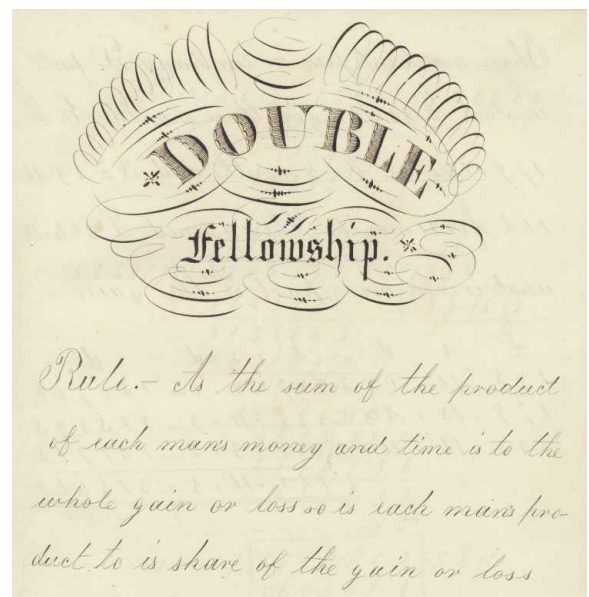 DOUBLE
Fellowship.
Rule.- As the sum of the product
of each mans money and time is to the
whole gain or loss so is each mans pro-
duct to is share of the gain or loss